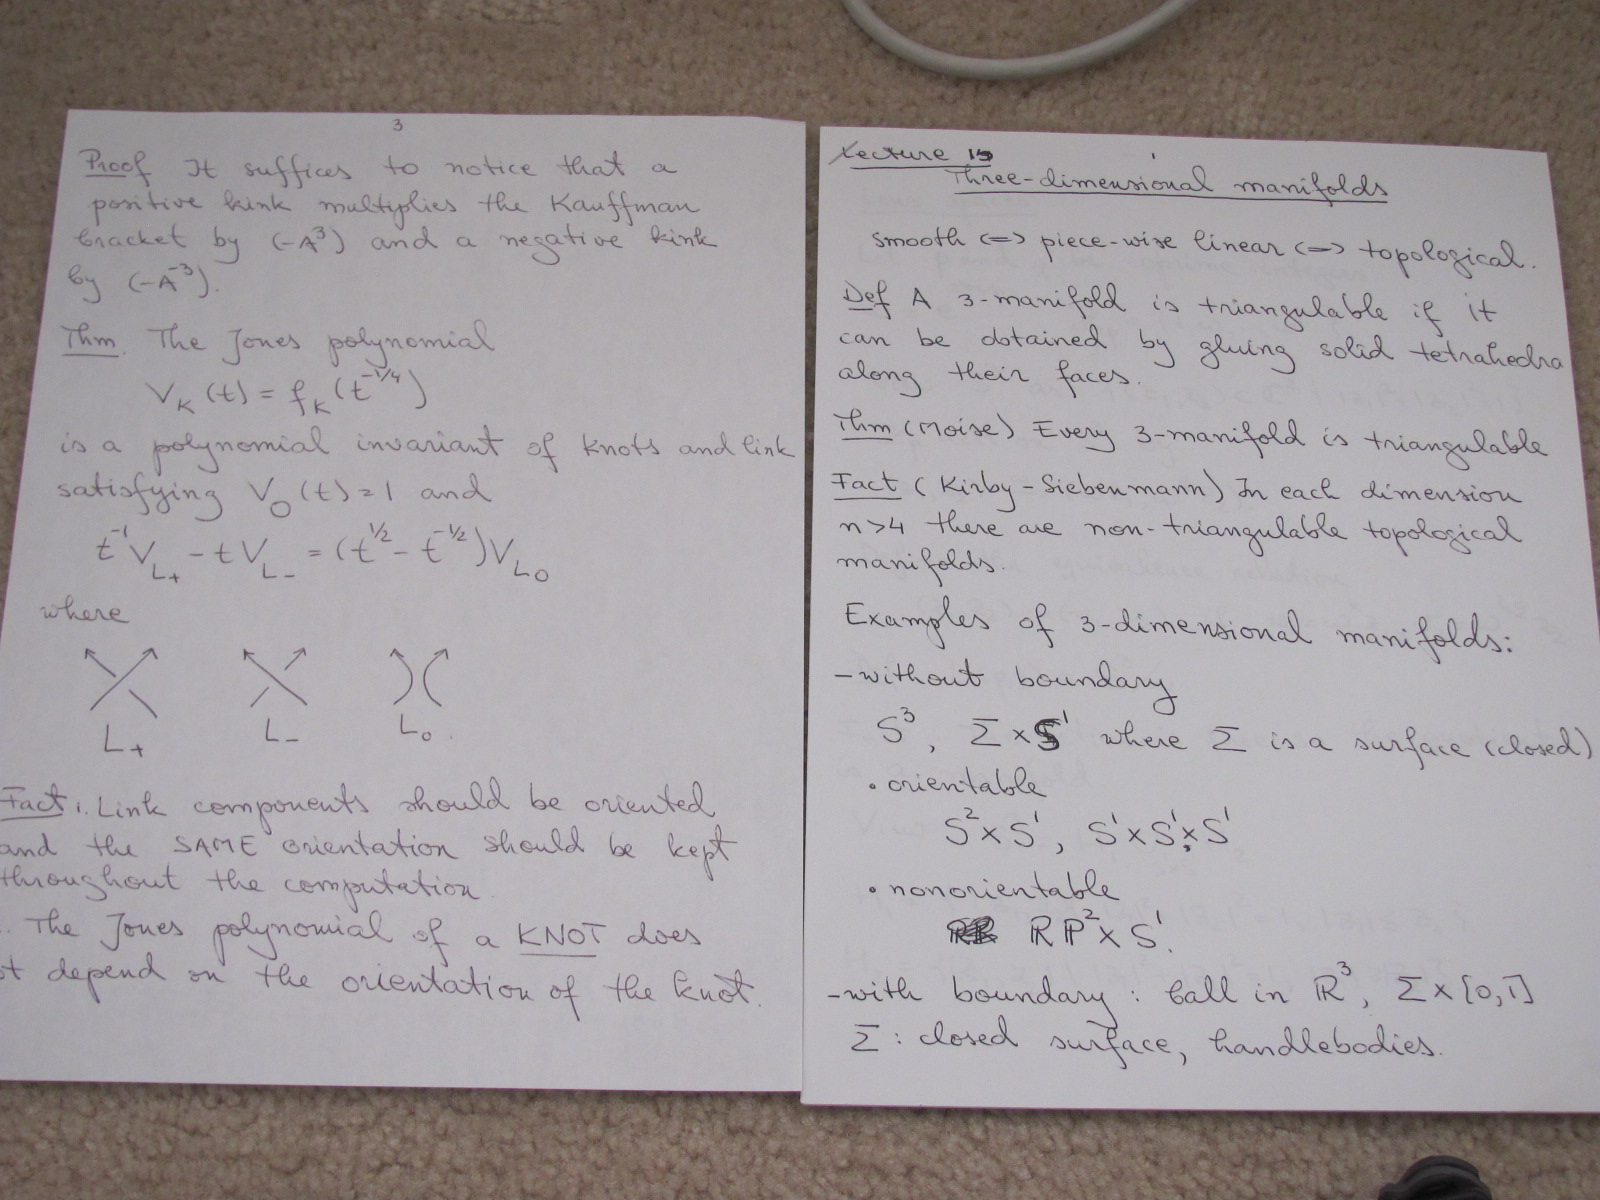 3
Proof It suffices to notice that a
positive kink multiplies the Kauffman
bracket by (-A³) and a negative kink
by (-A⁻³).
Thm. The Jones polynomial
V_K (t) = f_K (t^{-1/4})
is a polynomial invariant of knots and link
satisfying V_O (t) = 1 and
t⁻¹V_{L+} - tV_{L-} = (t^{1/2} - t^{-1/2})V_{L0}
where
L+ L- L0.
Fact 1. Link components should be oriented
and the SAME orientation should be kept
throughout the computation.
. The Jones polynomial of a KNOT does
t depend on the orientation of the knot.
Lecture
1
Three-dimensional manifolds
smooth <=> piece-wise linear <=> topological.
Def A 3-manifold is triangulable if it
can be obtained by gluing solid tetrahedra
along their faces.
Thm (Moise) Every 3-manifold is triangulable
Fact (Kirby-Siebenmann) In each dimension
n>4 there are non-triangulable topological
manifolds.
Examples of 3-dimensional manifolds:
-without boundary
S³, Σ×S¹ where Σ is a surface (closed)
• orientable
S²×S¹, S¹×S¹×S¹
• nonorientable
ℝP²×S¹.
-with boundary: ball in ℝ³, Σ×[0,1]
Σ: closed surface, handlebodies.